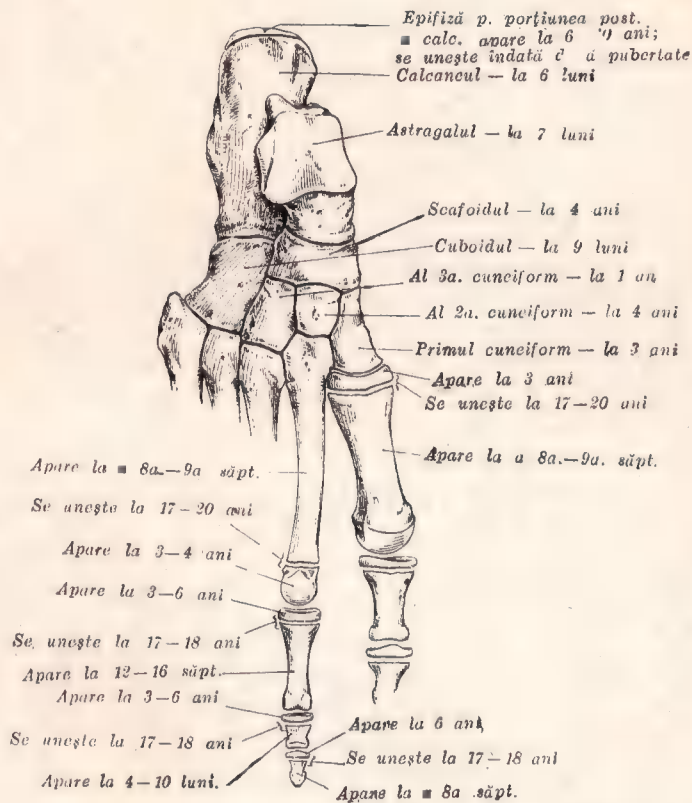 Epifiză p. porțiunea post.
calc. apare la 6 ani;
se unește îndată pubertate
Calcaneul — la 6 luni
Astragalul — la 7 luni
Scafoidul — la 4 ani
Cuboidul — la 9 luni
Al 3a. cuneiform — la 1 an
Al 2a. cuneiform — la 4 ani
Primul cuneiform — la 3 ani
Apare la 3 ani
Se unește la 17—20 ani
Apare la a 8a.—9a. săpt.
Apare la 8a.—9a săpt.
Se unește la 17—20 ani
Apare la 3—4 ani
Apare la 3—6 ani
Se unește la 17—18 ani
Apare la 12—16 săpt.
Apare la 3—6 ani
Se unește la 17—18 ani
Apare la 4—10 luni.
Apare la 6 ani
Se unește la 17—18 ani
Apare la 8a săpt.